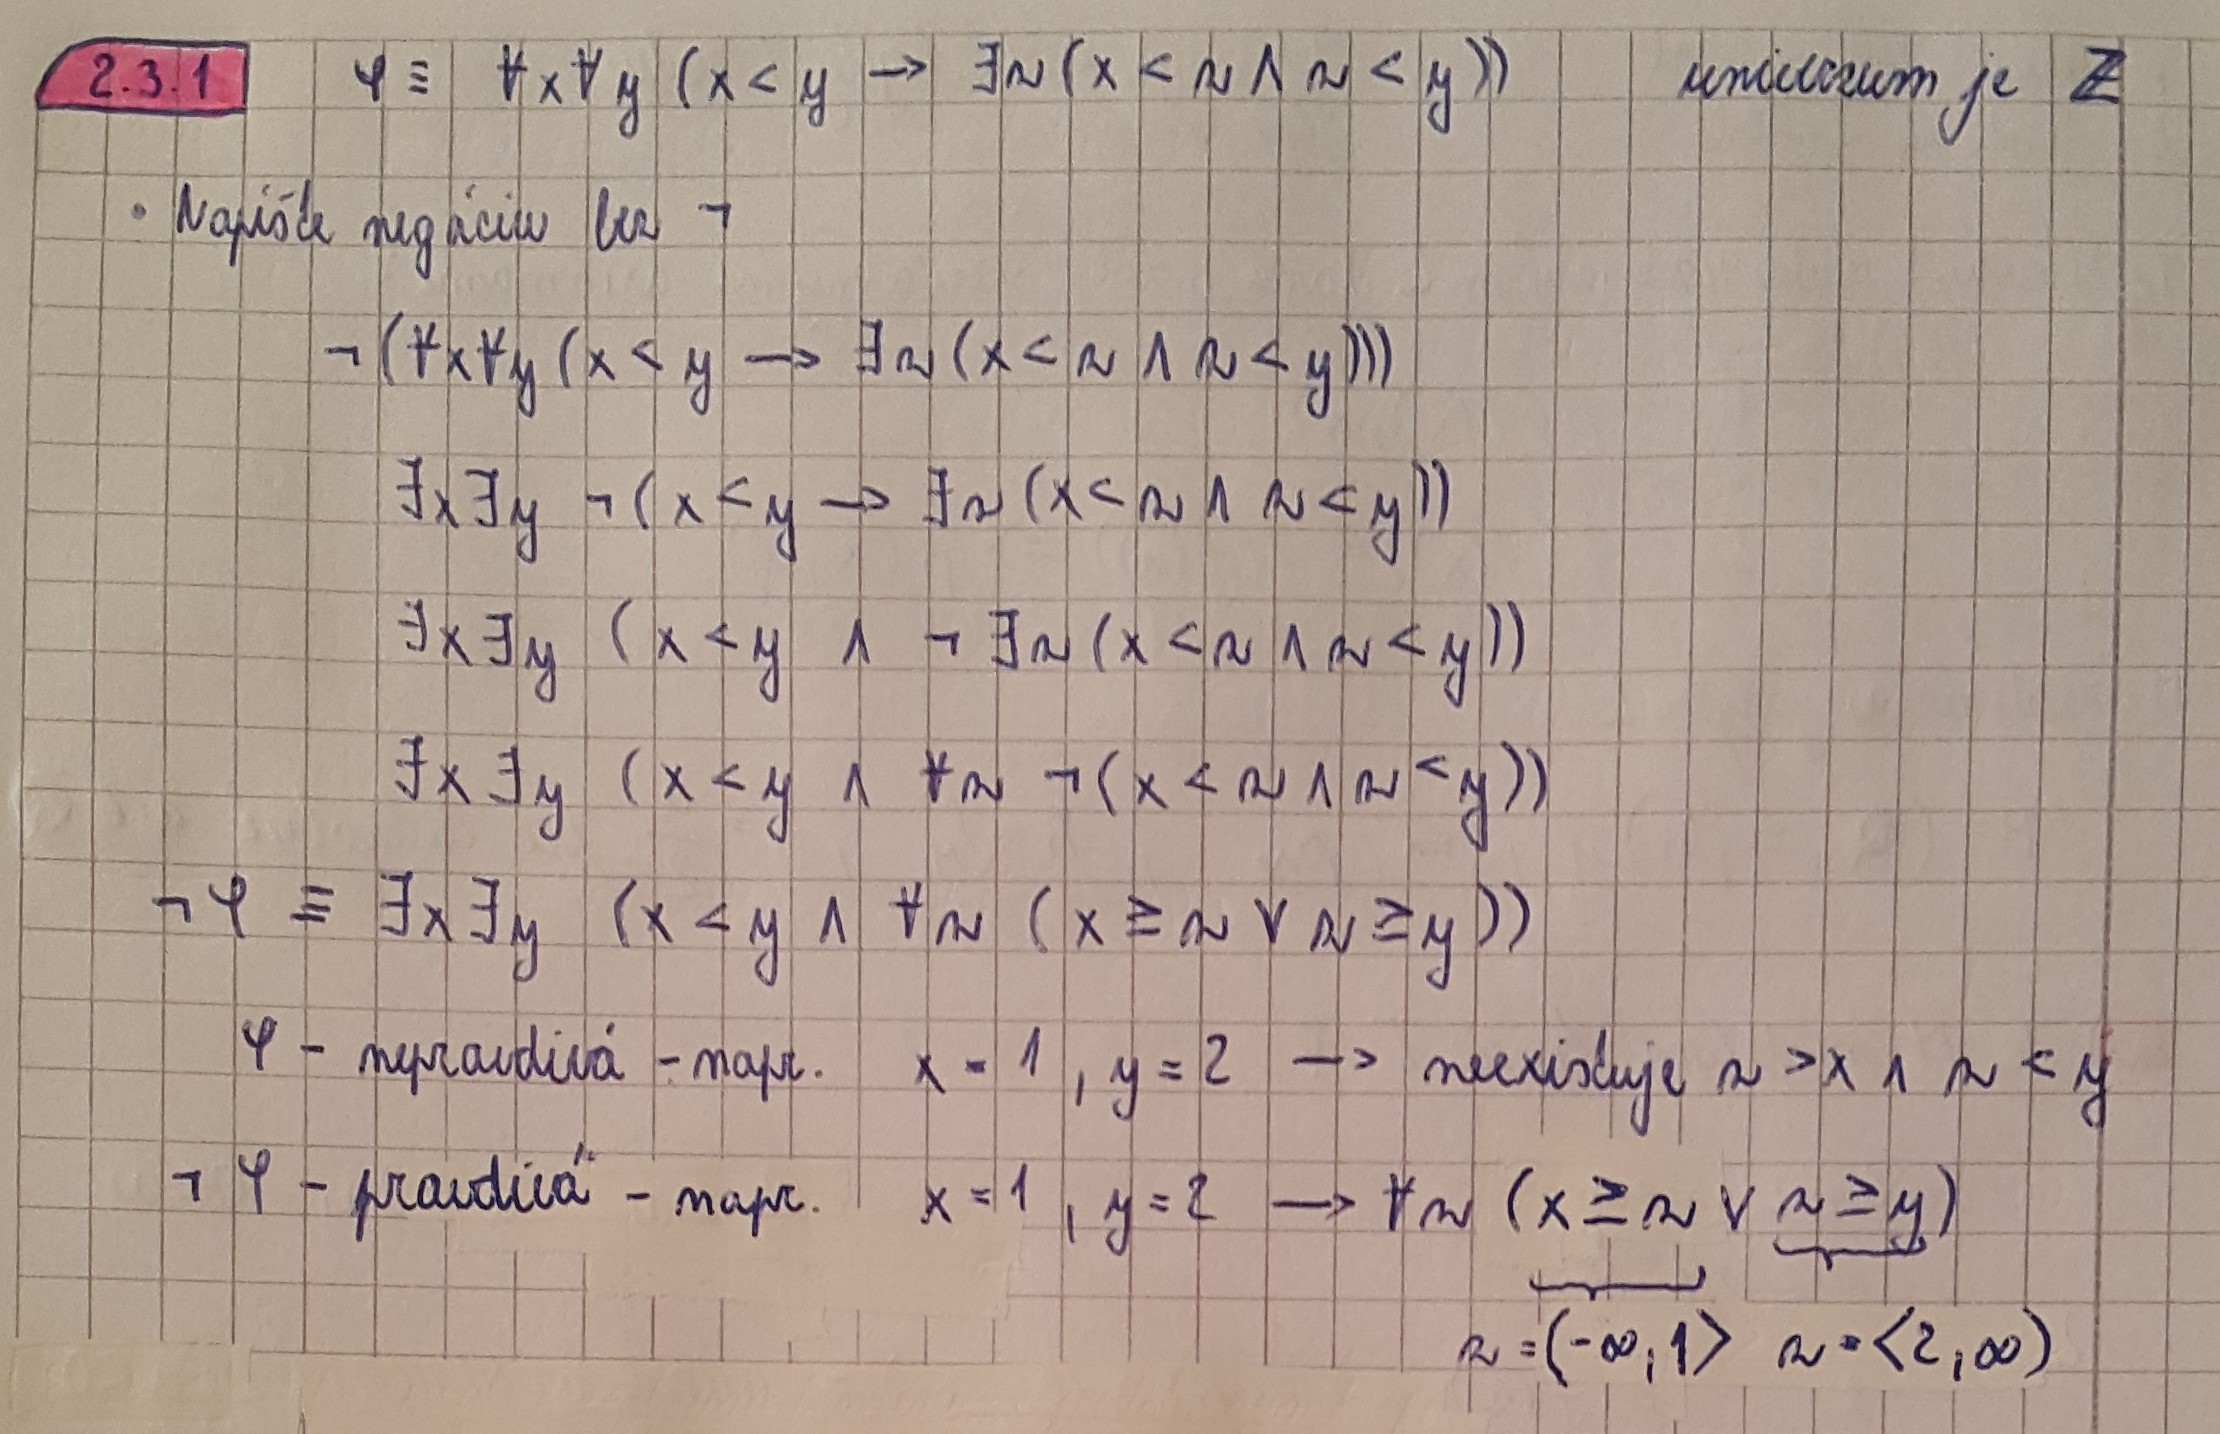 2.3.1 φ ≡ ∀x∀y (x < y → ∃z (x < z ∧ z < y)) univerzum je ℤ
• Napíšte negáciu bez ¬
¬(∀x∀y (x < y → ∃z (x < z ∧ z < y)))
∃x∃y ¬(x < y → ∃z (x < z ∧ z < y))
∃x∃y (x < y ∧ ¬∃z (x < z ∧ z < y))
∃x∃y (x < y ∧ ∀z ¬(x < z ∧ z < y))
¬φ ≡ ∃x∃y (x < y ∧ ∀z (x ≥ z ∨ z ≥ y))
φ - nepravdivá - napr. x = 1, y = 2 → neexistuje z > x ∧ z < y
¬φ - pravdivá - napr. x = 1, y = 2 → ∀z (x ≥ z ∨ z ≥ y)
z = (-∞, 1⟩ z = ⟨2, ∞)